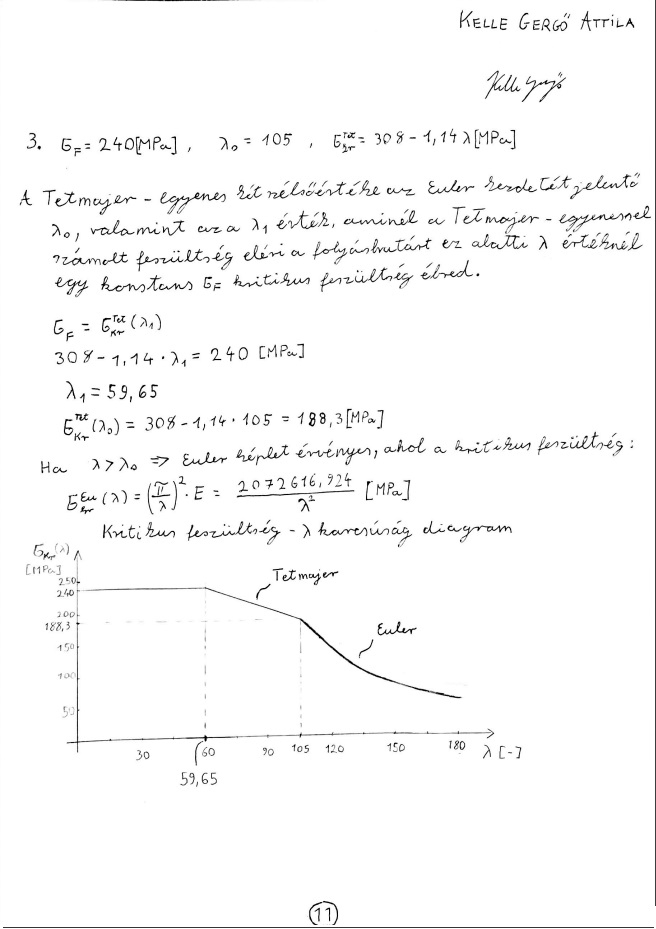 KELLE GERGŐ ATTILA
Kelle Gergő
3. σF = 240[MPa] , λ₀ = 105 , σkrTet = 308 - 1,14 λ[MPa]
A Tetmajer - egyenes két szélsőértéke az Euler kezdetét jelentő
λ₀, valamint az a λ₁ érték, aminél a Tetmajer - egyenessel
számolt feszültség eléri a folyáshatárt ez alatti λ értéknél
egy konstans σF kritikus feszültség ébred.
σF = σKrTet (λ₁)
308 - 1,14 · λ₁ = 240 [MPa]
λ₁ = 59,65
σKrTet (λ₀) = 308 - 1,14 · 105 = 188,3[MPa]
Ha λ > λ₀ ⇒ Euler képlet érvényes, ahol a kritikus feszültség:
σkrEu (λ) = (π/λ)² · E = 2072616,924/λ² [MPa]
Kritikus feszültség - λ karcsúság diagram
σKr(λ)
[MPa]
250
240
200
188,3
150
100
50
Tetmajer
Euler
30 60 90 105 120 150 180 λ [-]
59,65
11